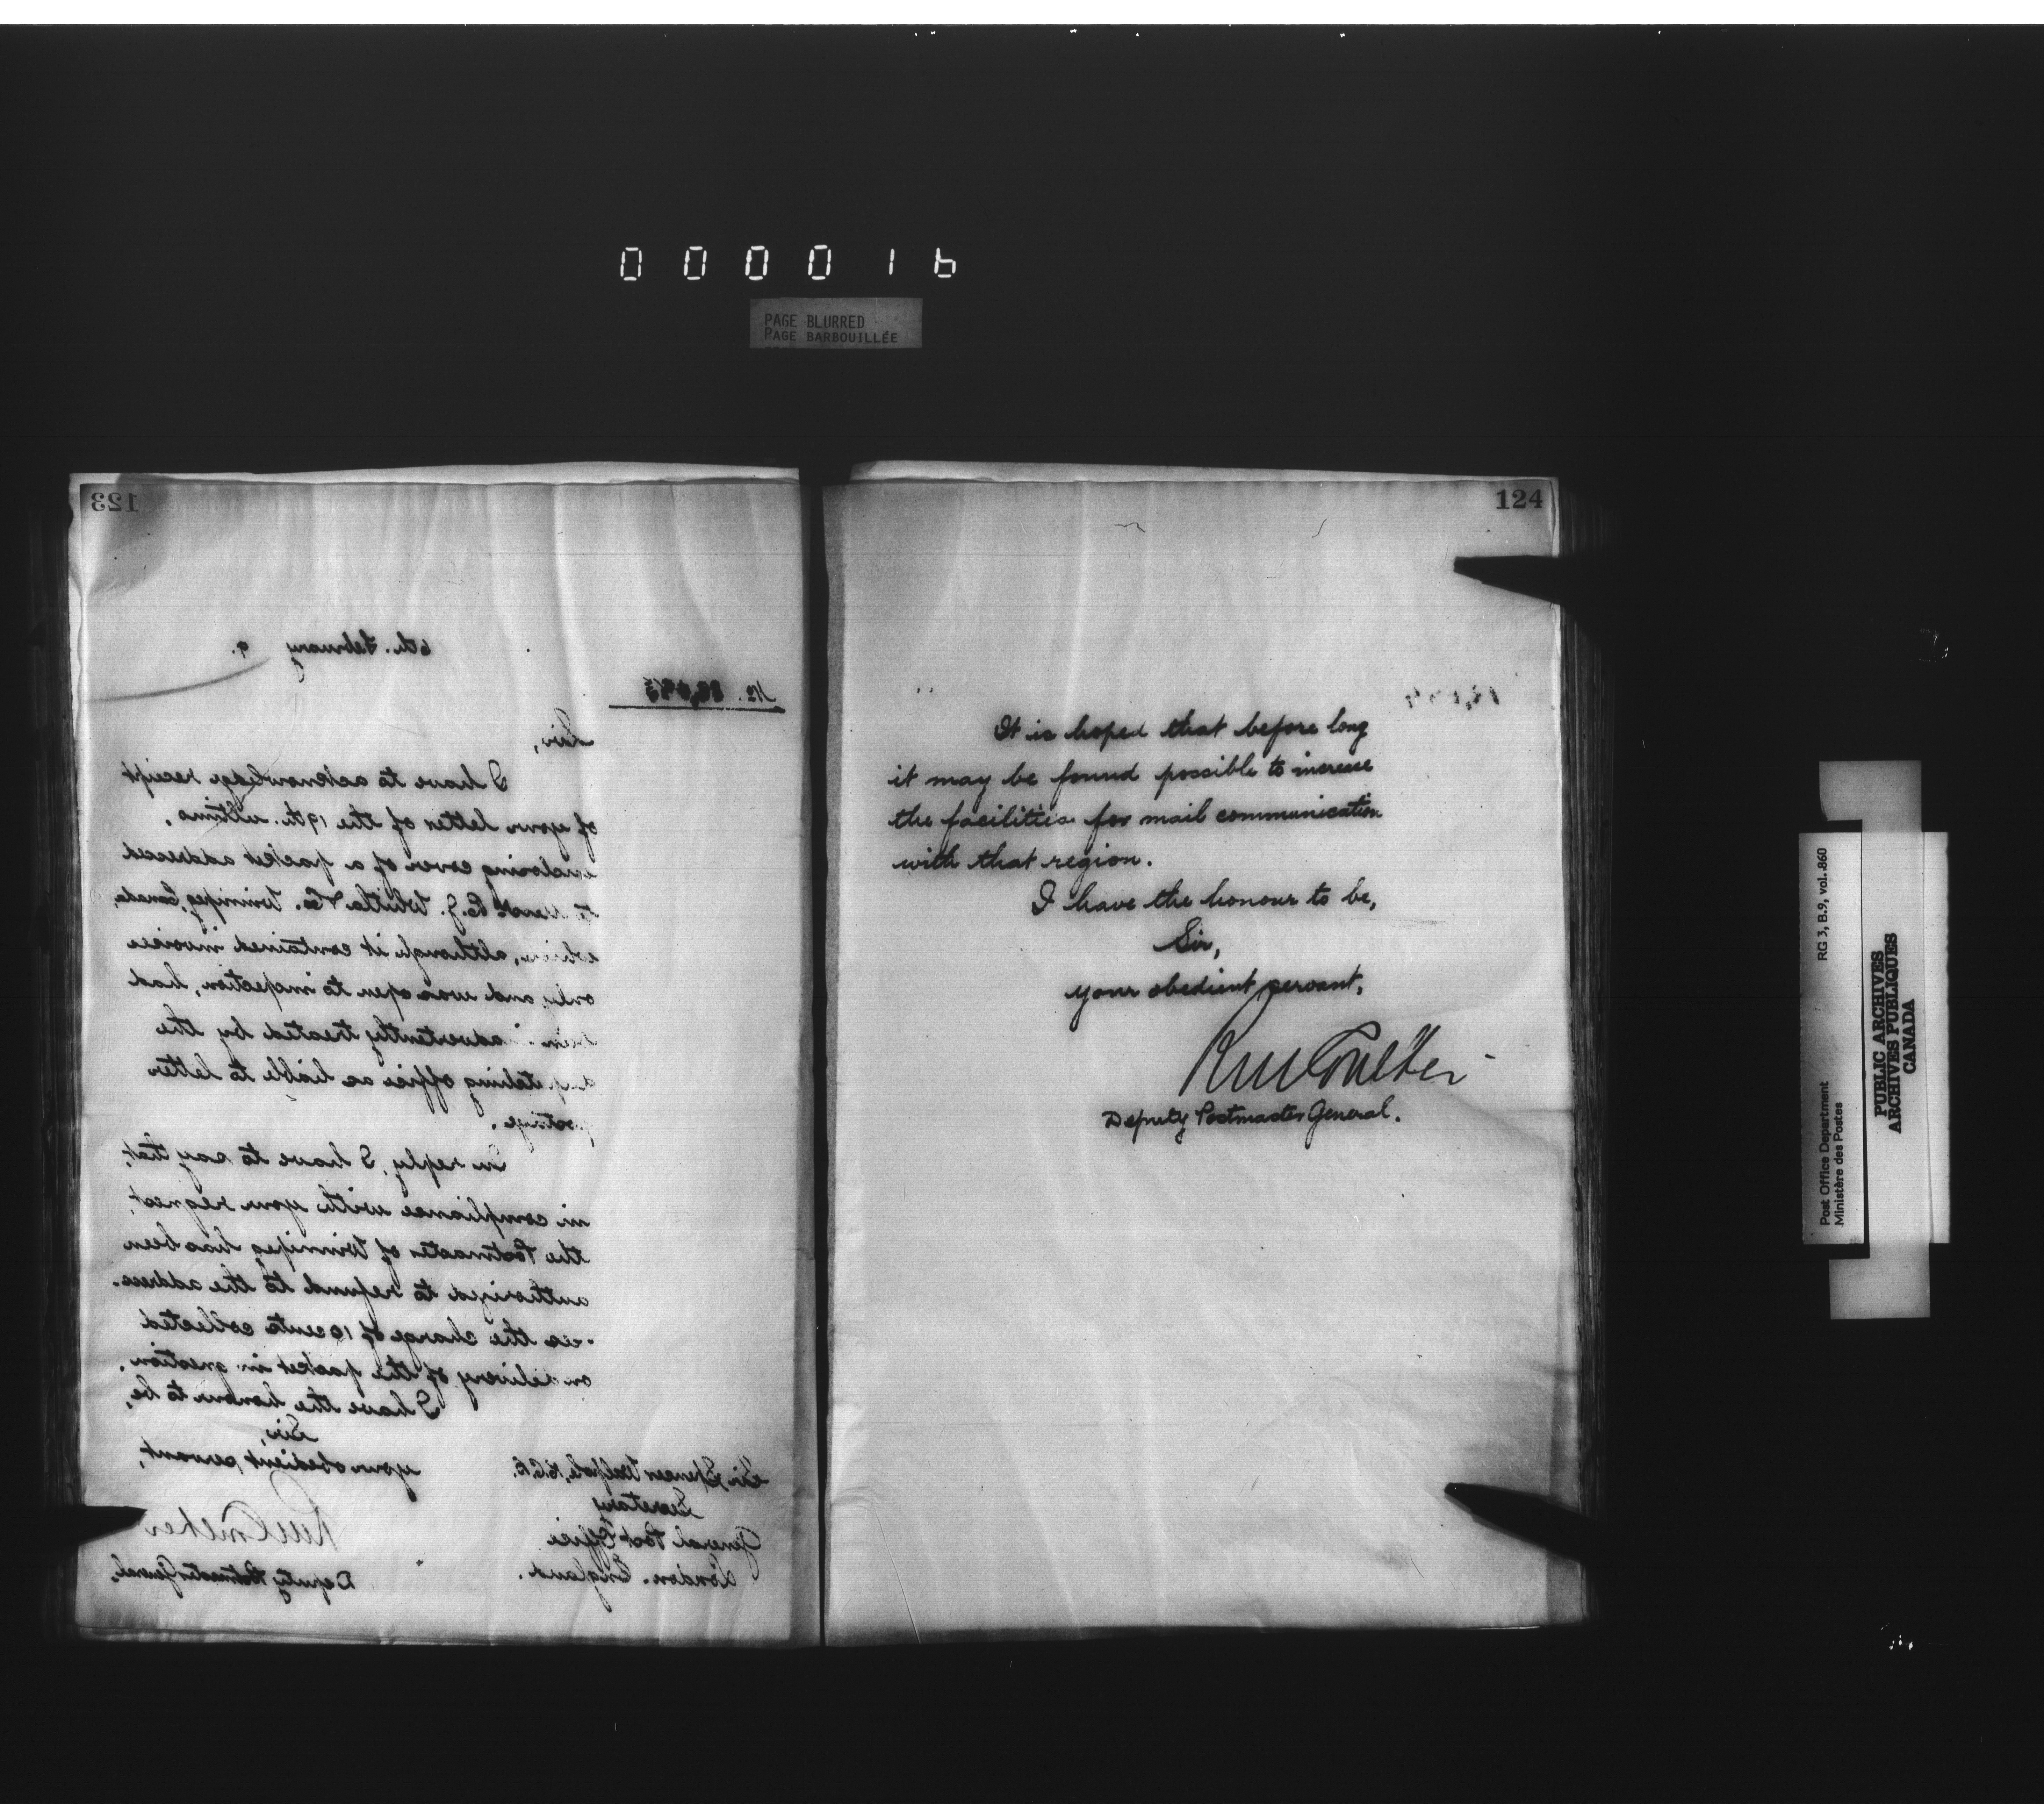 000016
PAGE BLURRED
PAGE BARBOUILLÉE
123
6th. February 9.
No.
Sir,
I have to acknowledge receipt
of your letter of the 19th. ultimo,
enclosing cover of a packet addressed
to R.J. Whitla & Co. Winnipeg, Canada,
which, although it contained invoices
only and was open to inspection, had
been inadvertently treated by the
despatching office as liable to letter
postage.
In reply, I have to say that,
in compliance with your request,
the Postmaster of Winnipeg has been
authorized to refund to the address-
-ees the charge of 10 cents collected
on delivery of the packet in question.
I have the honour to be,
Sir,
your obedient servant,
RM Coulter
Deputy Postmaster General.
Sir Spencer Walpole, K.C.B.
Secretary
General Post Office
London. England.
124
It is hoped that before long
it may be found possible to increase
the facilities for mail communication
with that region.
I have the honour to be,
Sir,
your obedient servant,
RM Coulter
Deputy Postmaster General.
Post Office Department
Ministère des Postes
RG 3, B.9, vol. 860
PUBLIC ARCHIVES
ARCHIVES PUBLIQUES
CANADA